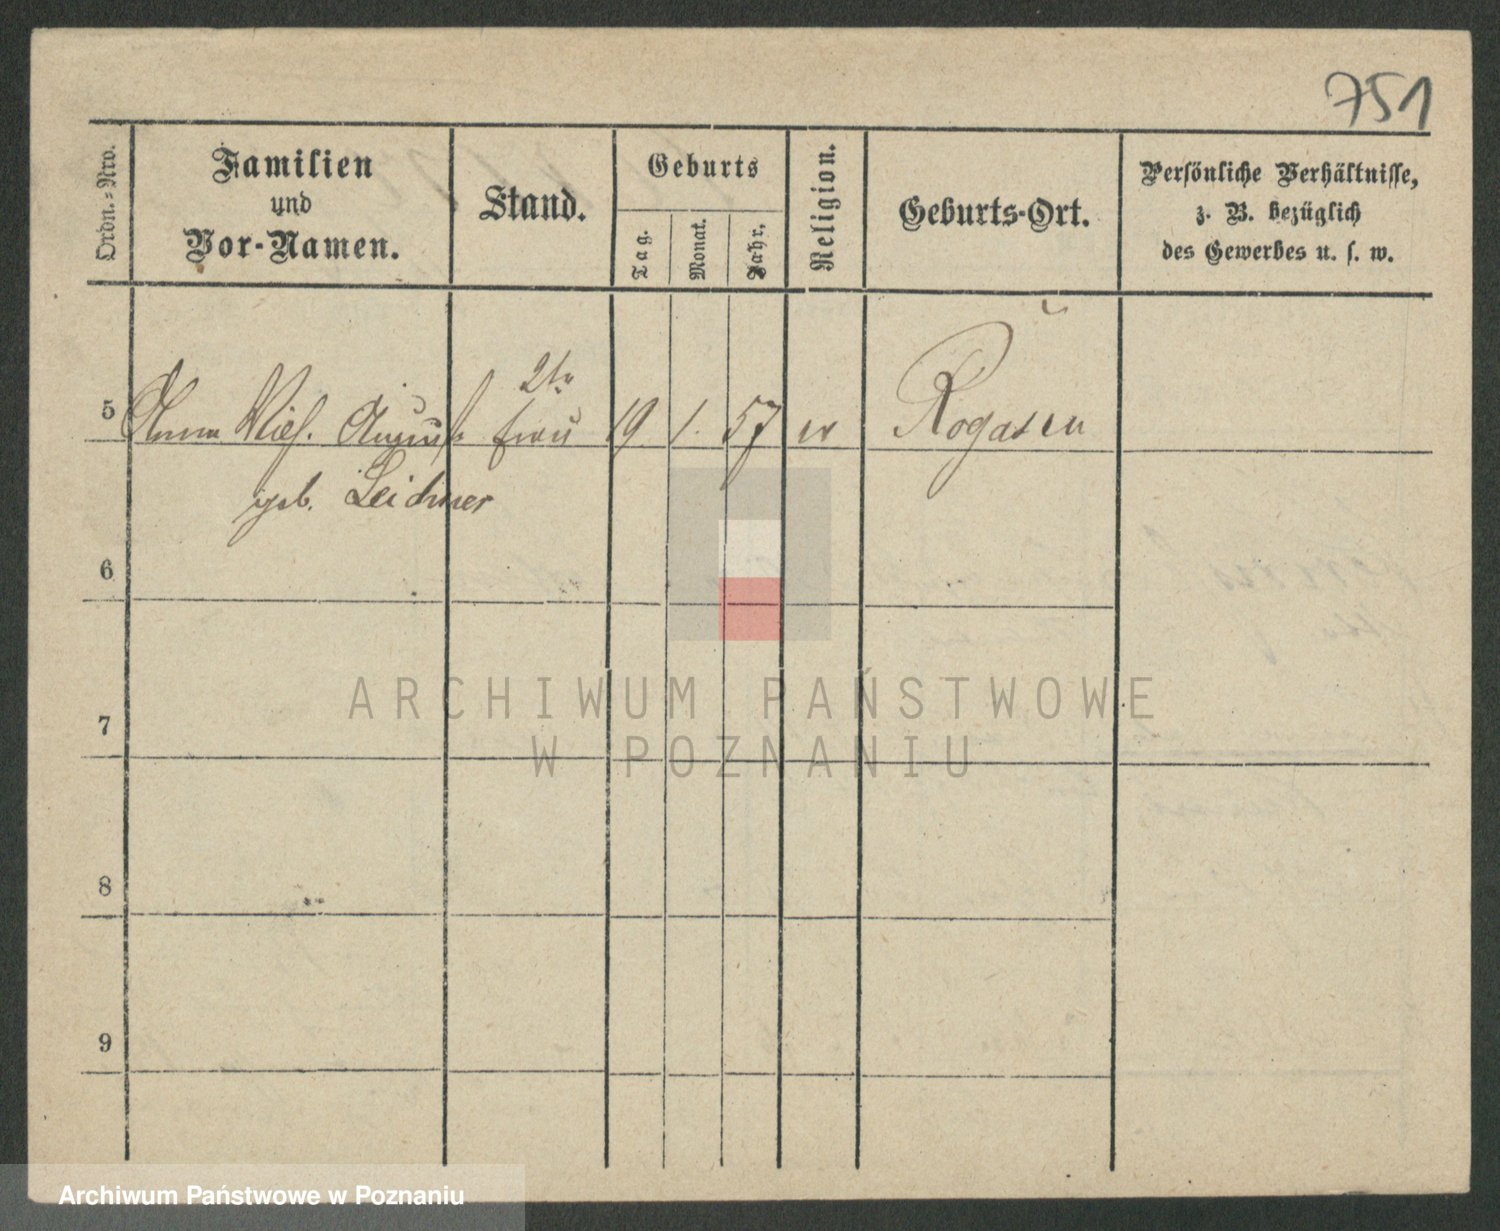 751
Ordn.-Nro.
Familien
und
Vor-Namen.
Stand.
Geburts
Tag.
Monat.
Jahr.
Religion.
Geburts-Ort.
Persönliche Verhältnisse,
z. B. bezüglich
des Gewerbes u. s. w.
2te
5 Anna August frau 19 1. 57 ev Rogasen
geb. Leichner
6
7
8
9
ARCHIWUM PAŃSTWOWE
W POZNANIU
Archiwum Państwowe w Poznaniu